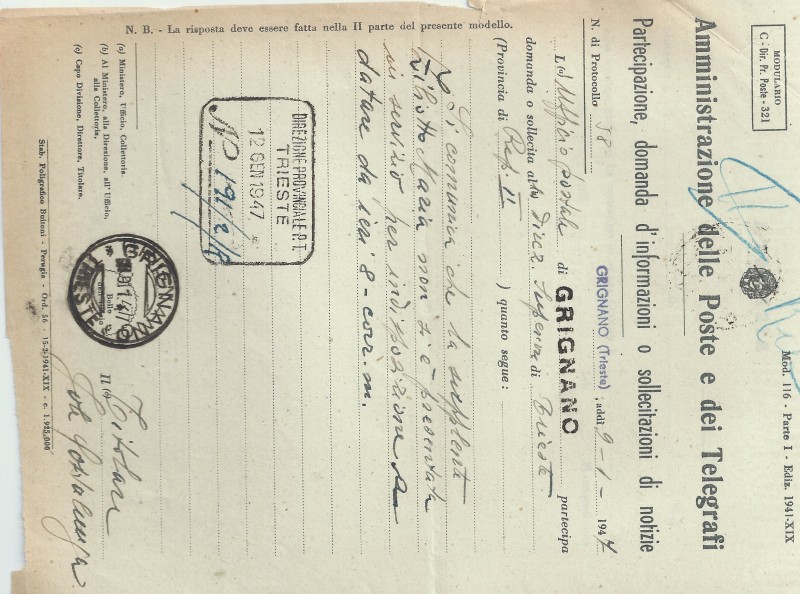 MODULARIO
C - Dir. Pr. Poste - 321
Mod. 116 - Parte I - Ediz. 1941-XIX
Amministrazione delle Poste e dei Telegrafi
Partecipazione, domanda d'informazioni o sollecitazioni di notizie
N. di Protocollo 58 GRIGNANO (Trieste), addì 9-1- 1947
L (a) Ufficio postale di GRIGNANO partecipa
domanda o sollecita al (b) Direz. Superiore di Trieste
(Provincia di Rep. II ) quanto segue:
Si comunica che la supplente
Maria non si è presentata
in servizio per indisposizione a
datare da ieri 8- corr. m.
DIREZIONE PROVINCIALE P. T.
TRIESTE
12 GEN 1947
No 191/2/R
GRIGNANO
TRIESTE
Bollo
dell'Ufficio
Il (c) Titolare
(a) Ministero, Ufficio, Collettoria.
(b) Al Ministero, alla Direzione, all'Ufficio,
alla Collettoria.
(c) Capo Divisione, Direttore, Titolare.
N. B. - La risposta deve essere fatta nella II parte del presente modello.
Stab. Poligrafico Buitoni - Perugia - Ord. 56 - 15-2-1941-XIX - c. 1.925.000